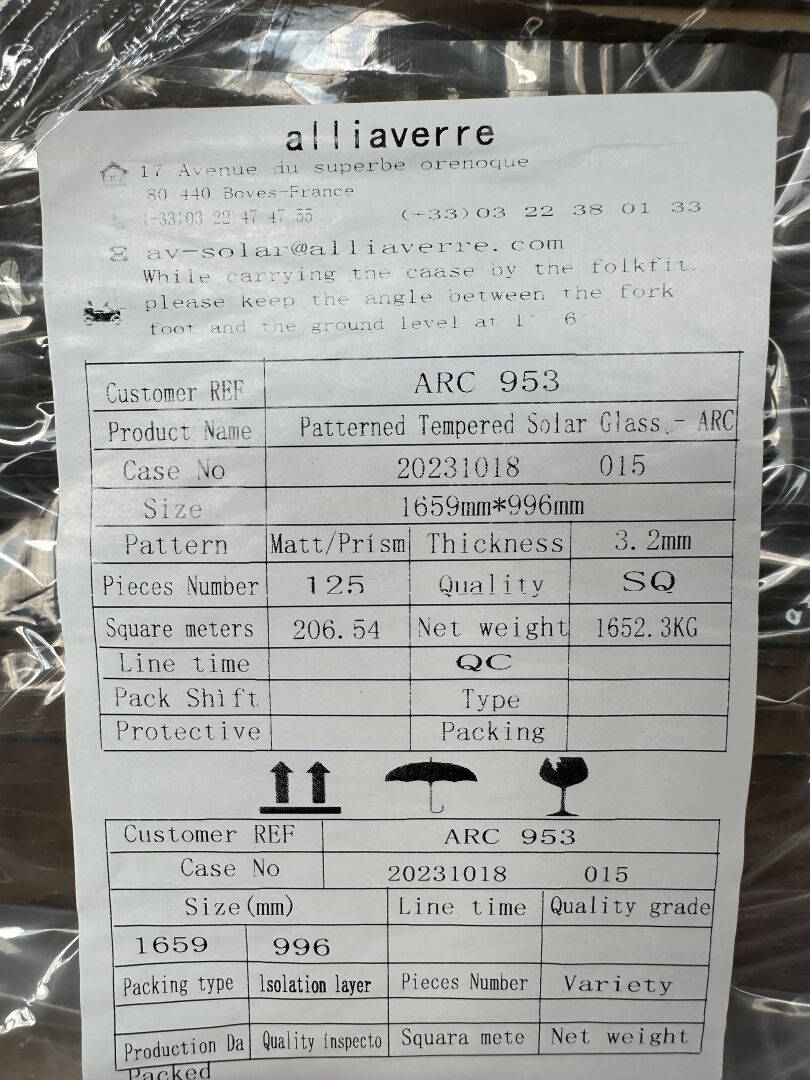 alliaverre
17 Avenue du superbe orenoque
80 440 Boves-France
(-33)03 22 47 47 55 (+33)03 22 38 01 33
av-solar@alliaverre.com
While carrying the caase by the folkfit.
please keep the angle between the fork
foot and the ground level at 1° 6°
Customer REF ARC 953
Product Name Patterned Tempered Solar Glass.- ARC
Case No 20231018 015
Size 1659mm*996mm
Pattern Matt/Prism Thickness 3.2mm
Pieces Number 125 Quality SQ
Square meters 206.54 Net weight 1652.3KG
Line time QC
Pack Shift Type
Protective Packing
Customer REF ARC 953
Case No 20231018 015
Size(mm) Line time Quality grade
1659 996
Packing type lsolation layer Pieces Number Variety
Production Da Quality inspecto Squara mete Net weight
Packed